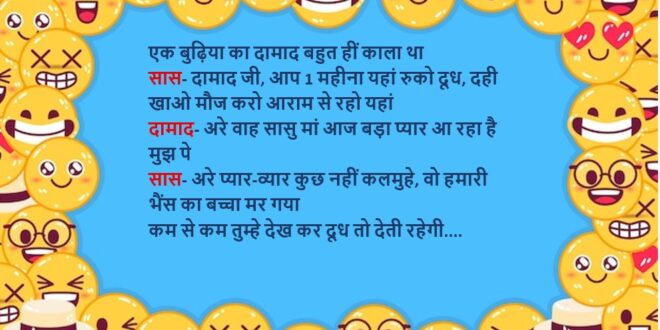 एक बुढ़िया का दामाद बहुत हीं काला था
सास- दामाद जी, आप 1 महीना यहां रुको दूध, दही
खाओ मौज करो आराम से रहो यहां
दामाद- अरे वाह सासु मां आज बड़ा प्यार आ रहा है
मुझ पे
सास- अरे प्यार-व्यार कुछ नहीं कलमुहे, वो हमारी
भैंस का बच्चा मर गया
कम से कम तुम्हे देख कर दूध तो देती रहेगी....